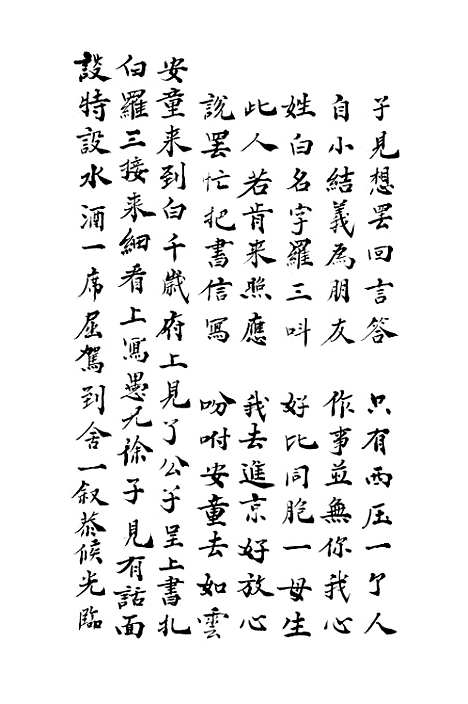 子見想罢回言答　只有西压一个人
自小結義為朋友　作事並無你我心
姓白名字羅三呌　好比同胞一母生
此人若肯来照應　我去進京好放心
說罢忙把書信寫　吩咐安童去如雲
安童来到白千歲府上見了公子呈上書札
白羅三接来細看上寫愚兄徐子見有話面
談特設水酒一席屈駕到舍一叙恭候光臨